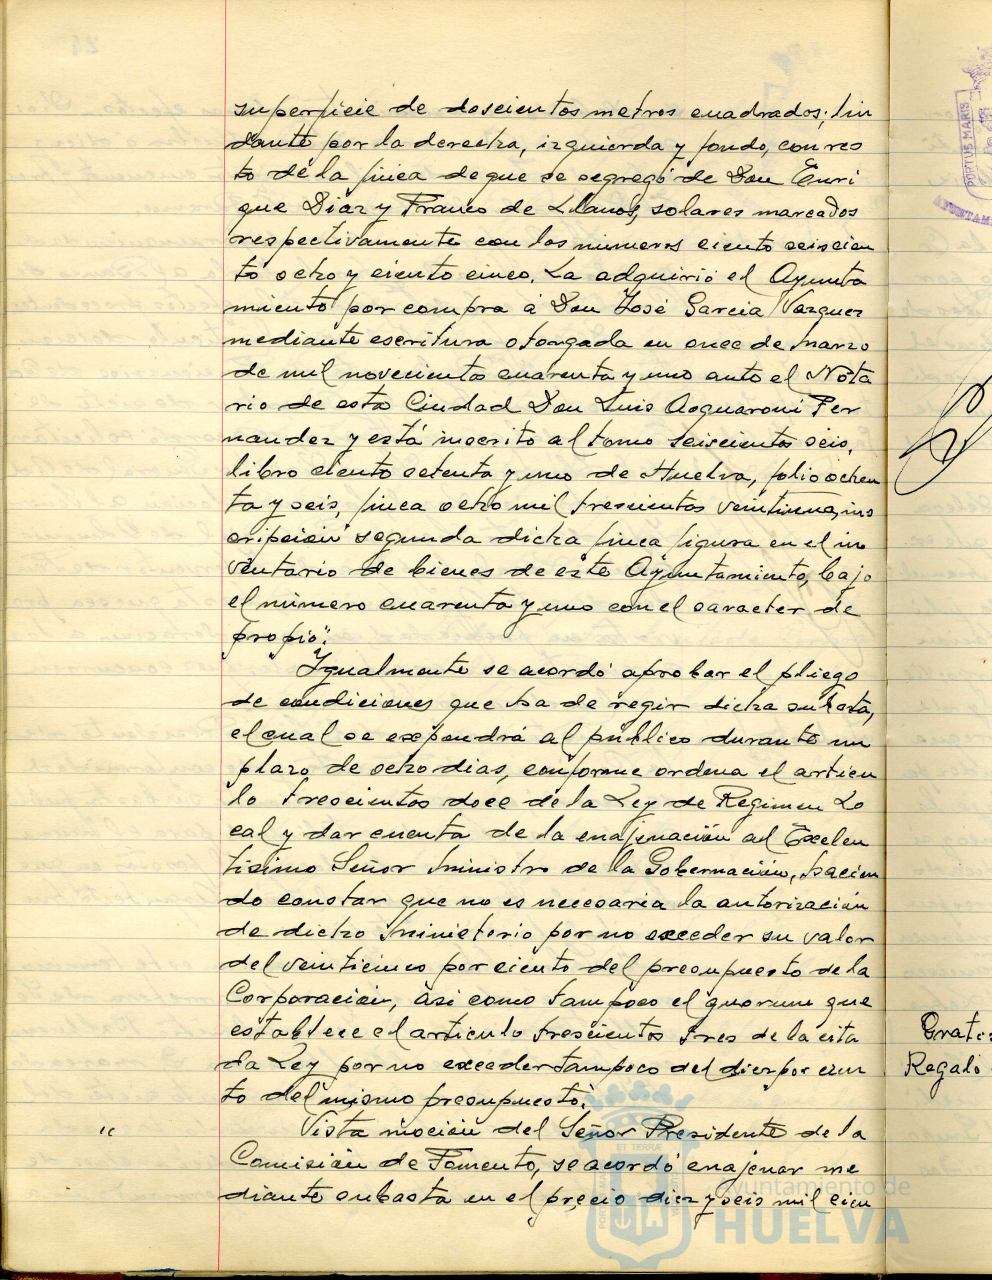 superficie de doscientos metros cuadrados; lin
dante por la derecha, izquierda y fondo, con res
to de la finca de que se segregó de Don Enri
que Diaz y Franco de Llanos, solares marcados
respectivamente con los numeros ciento seiscien
to ocho y ciento cinco. La adquirió el Ayunta
miento por compra á Don José Garcia Vazquez
mediante escritura otorgada en once de marzo
de mil novecientos cuarenta y uno ante el Nota
rio de esta Ciudad Don Luis Acquaroni Fer
nandez y está inscrito al tomo seiscientos seis,
libro ciento setenta y uno de Huelva, folio ochen
ta y seis, finca ocho mil trescientos veintiuna, ins
cripción segunda dicha finca figura en el in
ventario de bienes de este Ayuntamiento, bajo
el número cuarenta y uno con el caracter de
propio".
Igualmente se acordó aprobar el pliego
de condiciones que ha de regir dicha subasta,
el cual se expondrá al público durante un
plazo de ocho dias, conforme ordena el articu
lo trescientos doce de la Ley de Regimen Lo
cal y dar cuenta de la enajenación al Excelen
tisimo Señor Ministro de la Gobernación, hacien
do constar que no es necesaria la autorización
de dicho Ministerio por no exceder su valor
del veinticinco por ciento del presupuesto de la
Corporación, asi como tampoco el quorum que
establece el articulo trescientos tres de la cita
da Ley por no exceder tampoco del diez por cien
to del mismo presupuesto.
" Vista moción del Señor Presidente de la
Comisión de Fomento, se acordó enajenar me
diante subasta en el precio diez y seis mil cien
Regalo
PORTUS MARIS
ET TERRA
Ayuntamiento de
HUELVA